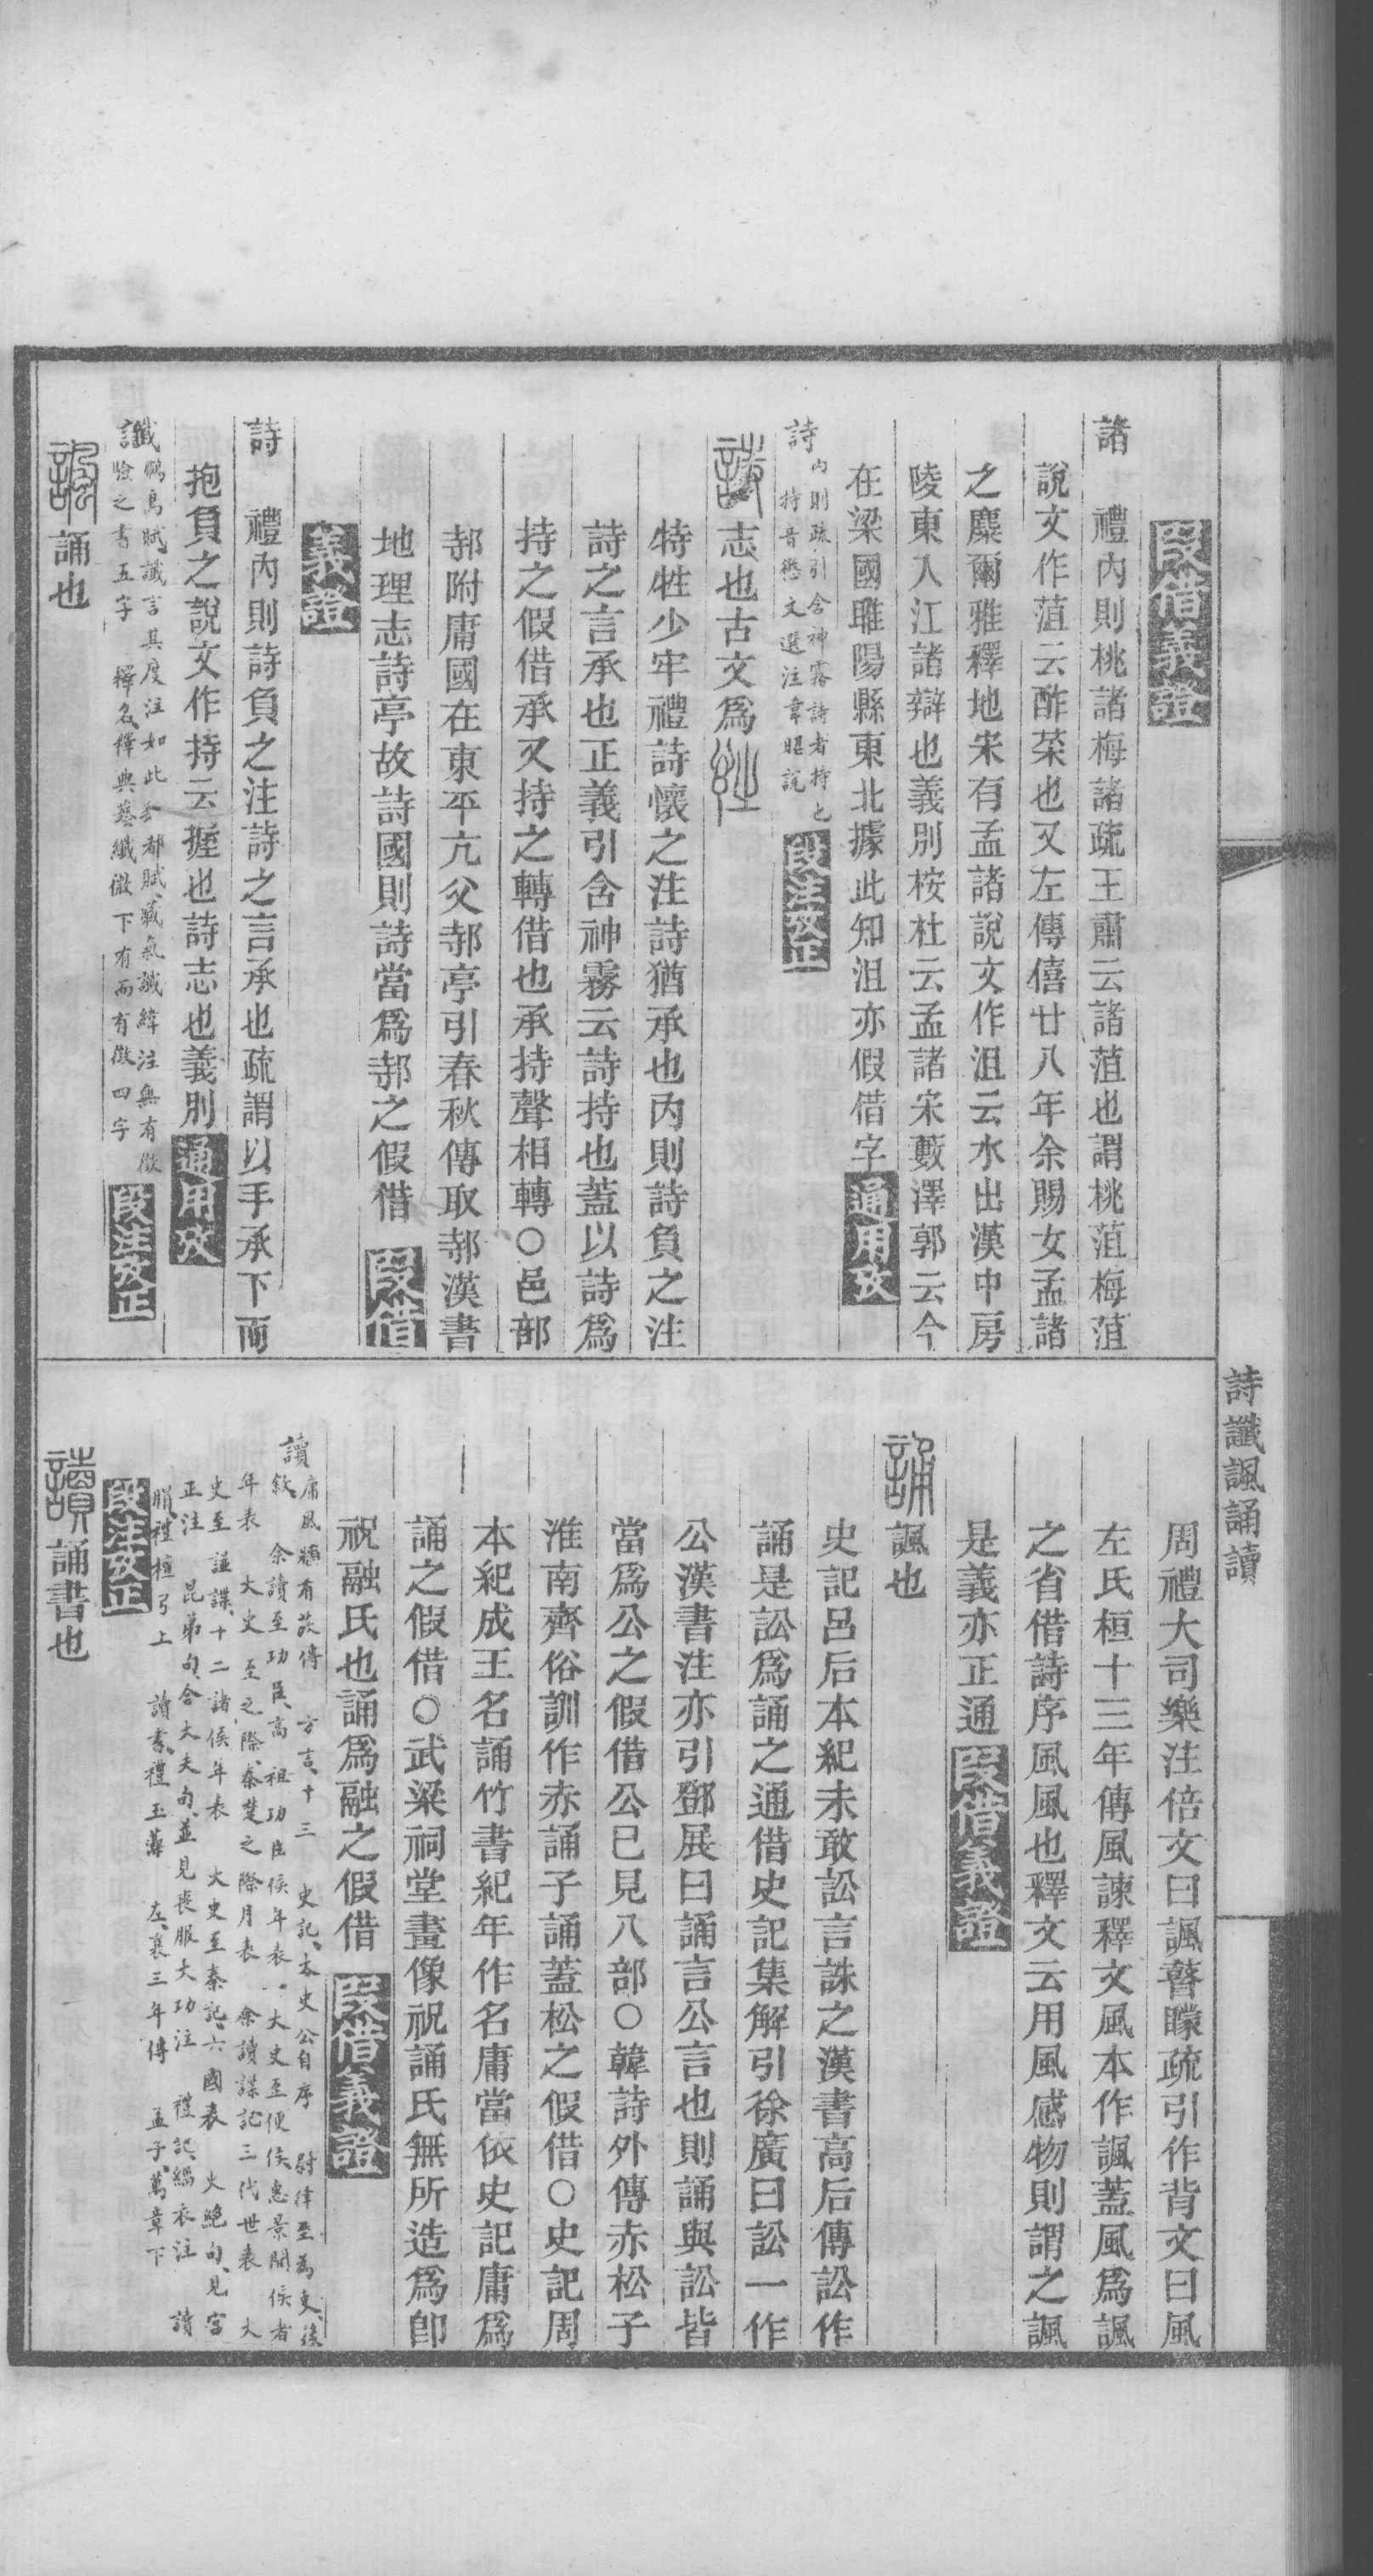 叚借義證
諸　禮內則桃諸梅諸疏王肅云諸菹也謂桃菹梅菹
說文作菹云酢菜也又左傳僖廿八年余賜女孟諸
之麋爾雅釋地宋有孟諸說文作沮云水出漢中房
陵東入江諸辯也義別桉杜云孟諸宋藪澤郭云今
在梁國睢陽縣東北據此知沮亦假借字通用攷
詩內則疏引含神霧詩者持也
持音懲文選注韋昭說段注攷正
詩志也古文爲
特牲少牢禮詩懷之注詩猶承也內則詩負之注
詩之言承也正義引含神霧云詩持也蓋以詩爲
持之假借承又持之轉借也承持聲相轉○邑部
邿附庸國在東平亢父邿亭引春秋傳取邿漢書
地理志詩亭故詩國則詩當爲邿之假借　叚借
義證
詩　禮內則詩負之注詩之言承也疏謂以手承下而
抱負之說文作持云握也詩志也義別通用攷
讖鵩鳥賦讖言其度注如此魏都賦藏氣讖緯注無有徵
驗之書五字　釋名釋典藝纖微下有而有徵四字　段注攷正
諷誦也
詩讖諷誦讀
周禮大司樂注倍文曰諷瞽矇疏引作背文曰風
左氏桓十三年傳風諫釋文風本作諷蓋風爲諷
之省借詩序風風也釋文云用風感物則謂之諷
是義亦正通叚借義證
誦諷也
史記呂后本紀未敢訟言誅之漢書高后傳訟作
誦是訟爲誦之通借史記集解引徐廣曰訟一作
公漢書注亦引鄧展曰誦言公言也則誦與訟皆
當爲公之假借公已見八部○韓詩外傳赤松子
淮南齊俗訓作赤誦子誦蓋松之假借○史記周
本紀成王名誦竹書紀年作名庸當依史記庸爲
誦之假借○武梁祠堂畫像祝誦氏無所造爲卽
祝融氏也誦爲融之假借　叚借義證
讀庸風牆有茨傳　方言十三　史記、太史公自序　尉律至爲吏、後
敘　余讀至功臣、高祖功臣侯年表、大史至便侯、惠景間侯者
年表　大史至之際、秦楚之際月表　余讀諜記三代世表　大
史至譜諜、十二諸侯年表　大史至秦記、六國表　火絶句、見宮
正注　昆弟句、合大夫句、並見喪服大功注　禮記緇衣注　讀
賵、禮檀弓上　讀書、禮玉藻　左、襄三年傳　孟子、萬章下
段注攷正
讀誦書也